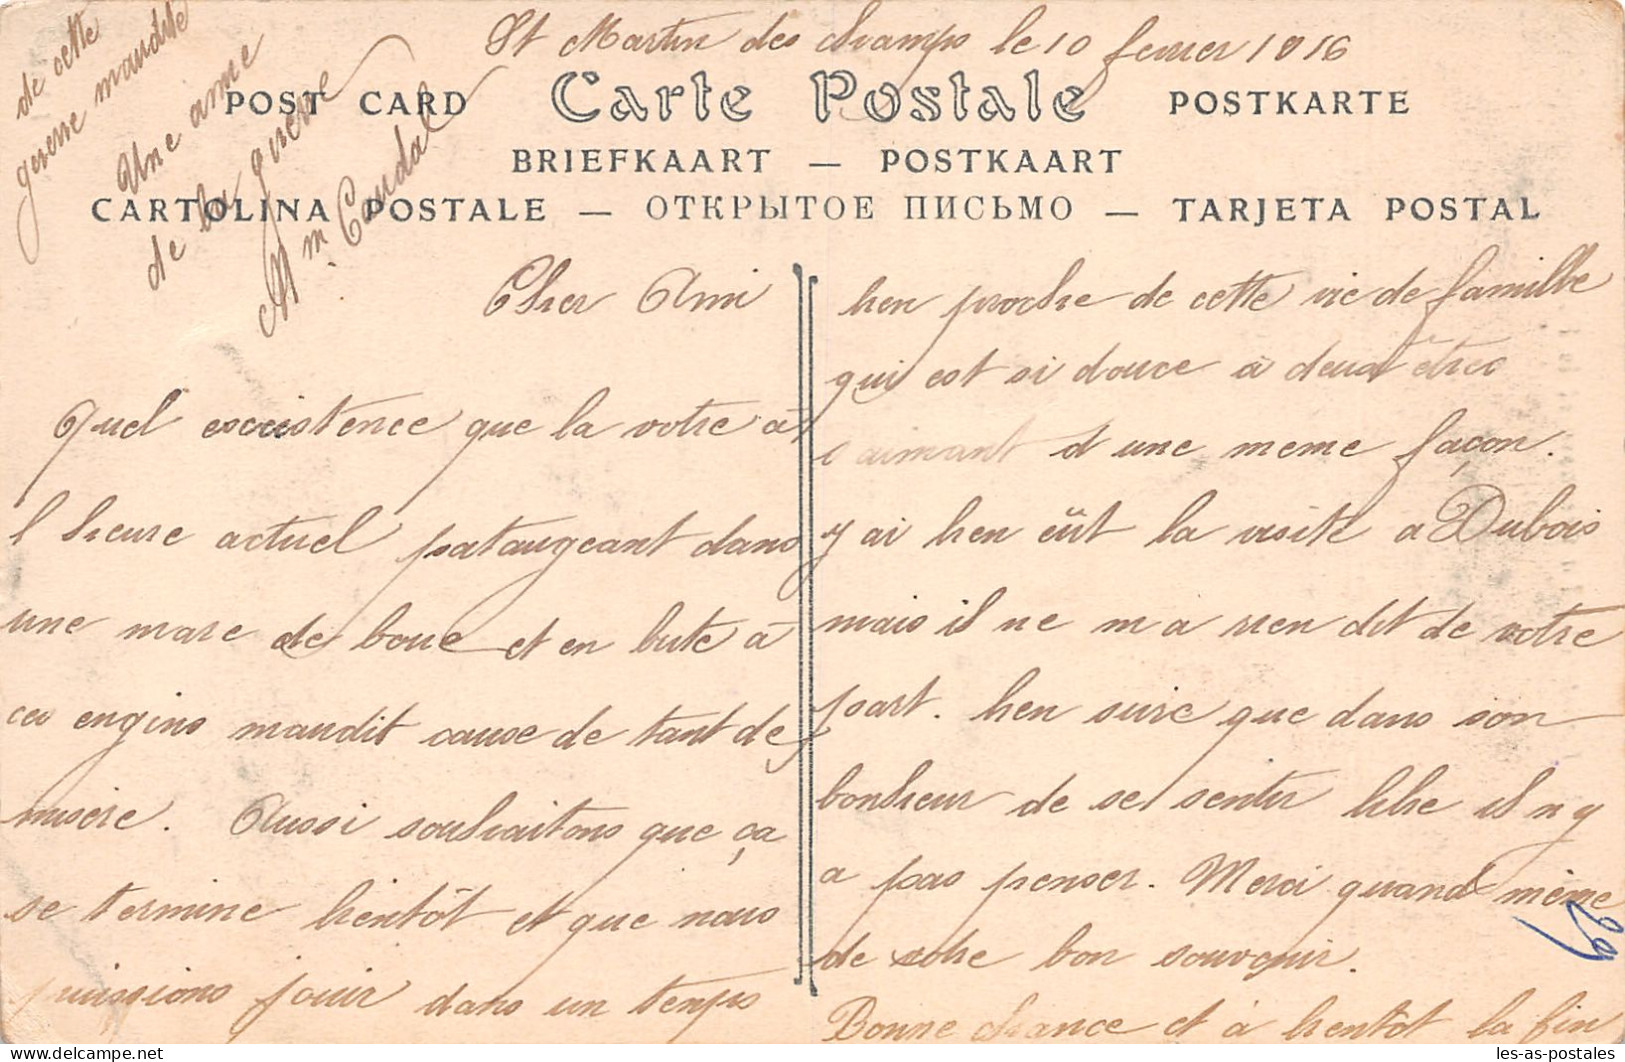 St Martin des champs le 10 fevrier 1916
POST CARD Carte Postale POSTKARTE
BRIEFKAART — POSTKAART
CARTOLINA POSTALE — ОТКРЫТОЕ ПИСЬМО — TARJETA POSTAL
Cher Ami
Quel existence que la votre à
l heure actuel pataugeant dans
une mare de boue et en bute à
ces engins maudit cause de tant de
misère. Aussi souhaitons que ça
se termine bientôt et que nous
puissions jouir dans un temps
bien proche de cette vie de famille
qui est si douce à deux êtres
s aimant d une meme façon.
j ai bien eüt la visite a Dubois
mais il ne m a rien dit de votre
part. bien sure que dans son
bonheur de se sentir libre il n y
a pas penser. Merci quand même
de votre bon souvenir.
Bonne chance et à bientôt la fin
de cette
guerre maudite
Une ame
de la guerre
Mm Caudal
29
les-as-postales.com